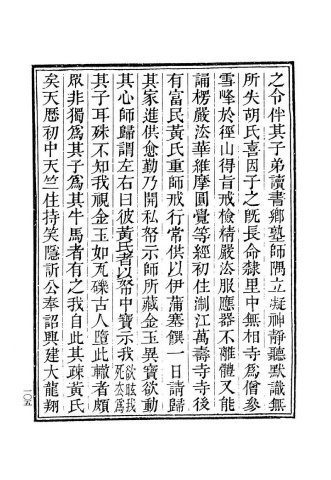 之令伴其子弟讀書鄉塾師隅立凝神靜聽默識無
所失胡氏喜因子之既長命隸里中無相寺爲僧參
雪峰於徑山得旨戒檢精嚴浤服應器不離體又能
誦楞嚴浤華維摩圓覺等經初住淛江萬壽寺寺後
有富民黃氏重師戒行常供以伊蒲塞饌一日請歸
其家進供愈勤乃開私帑示師所藏金玉異寶欲動
其心師歸謂左右曰彼黃氏者以帑中寶示我欲眩我死厺爲
其子耳殊不知我視金玉如瓦礫古人墮此轍者頗
眾非獨爲其子爲其牛馬者有之我自此其疎黃氏
矣天曆初中天竺住持笑隱訢公奉詔興建大龍翔
一〇五